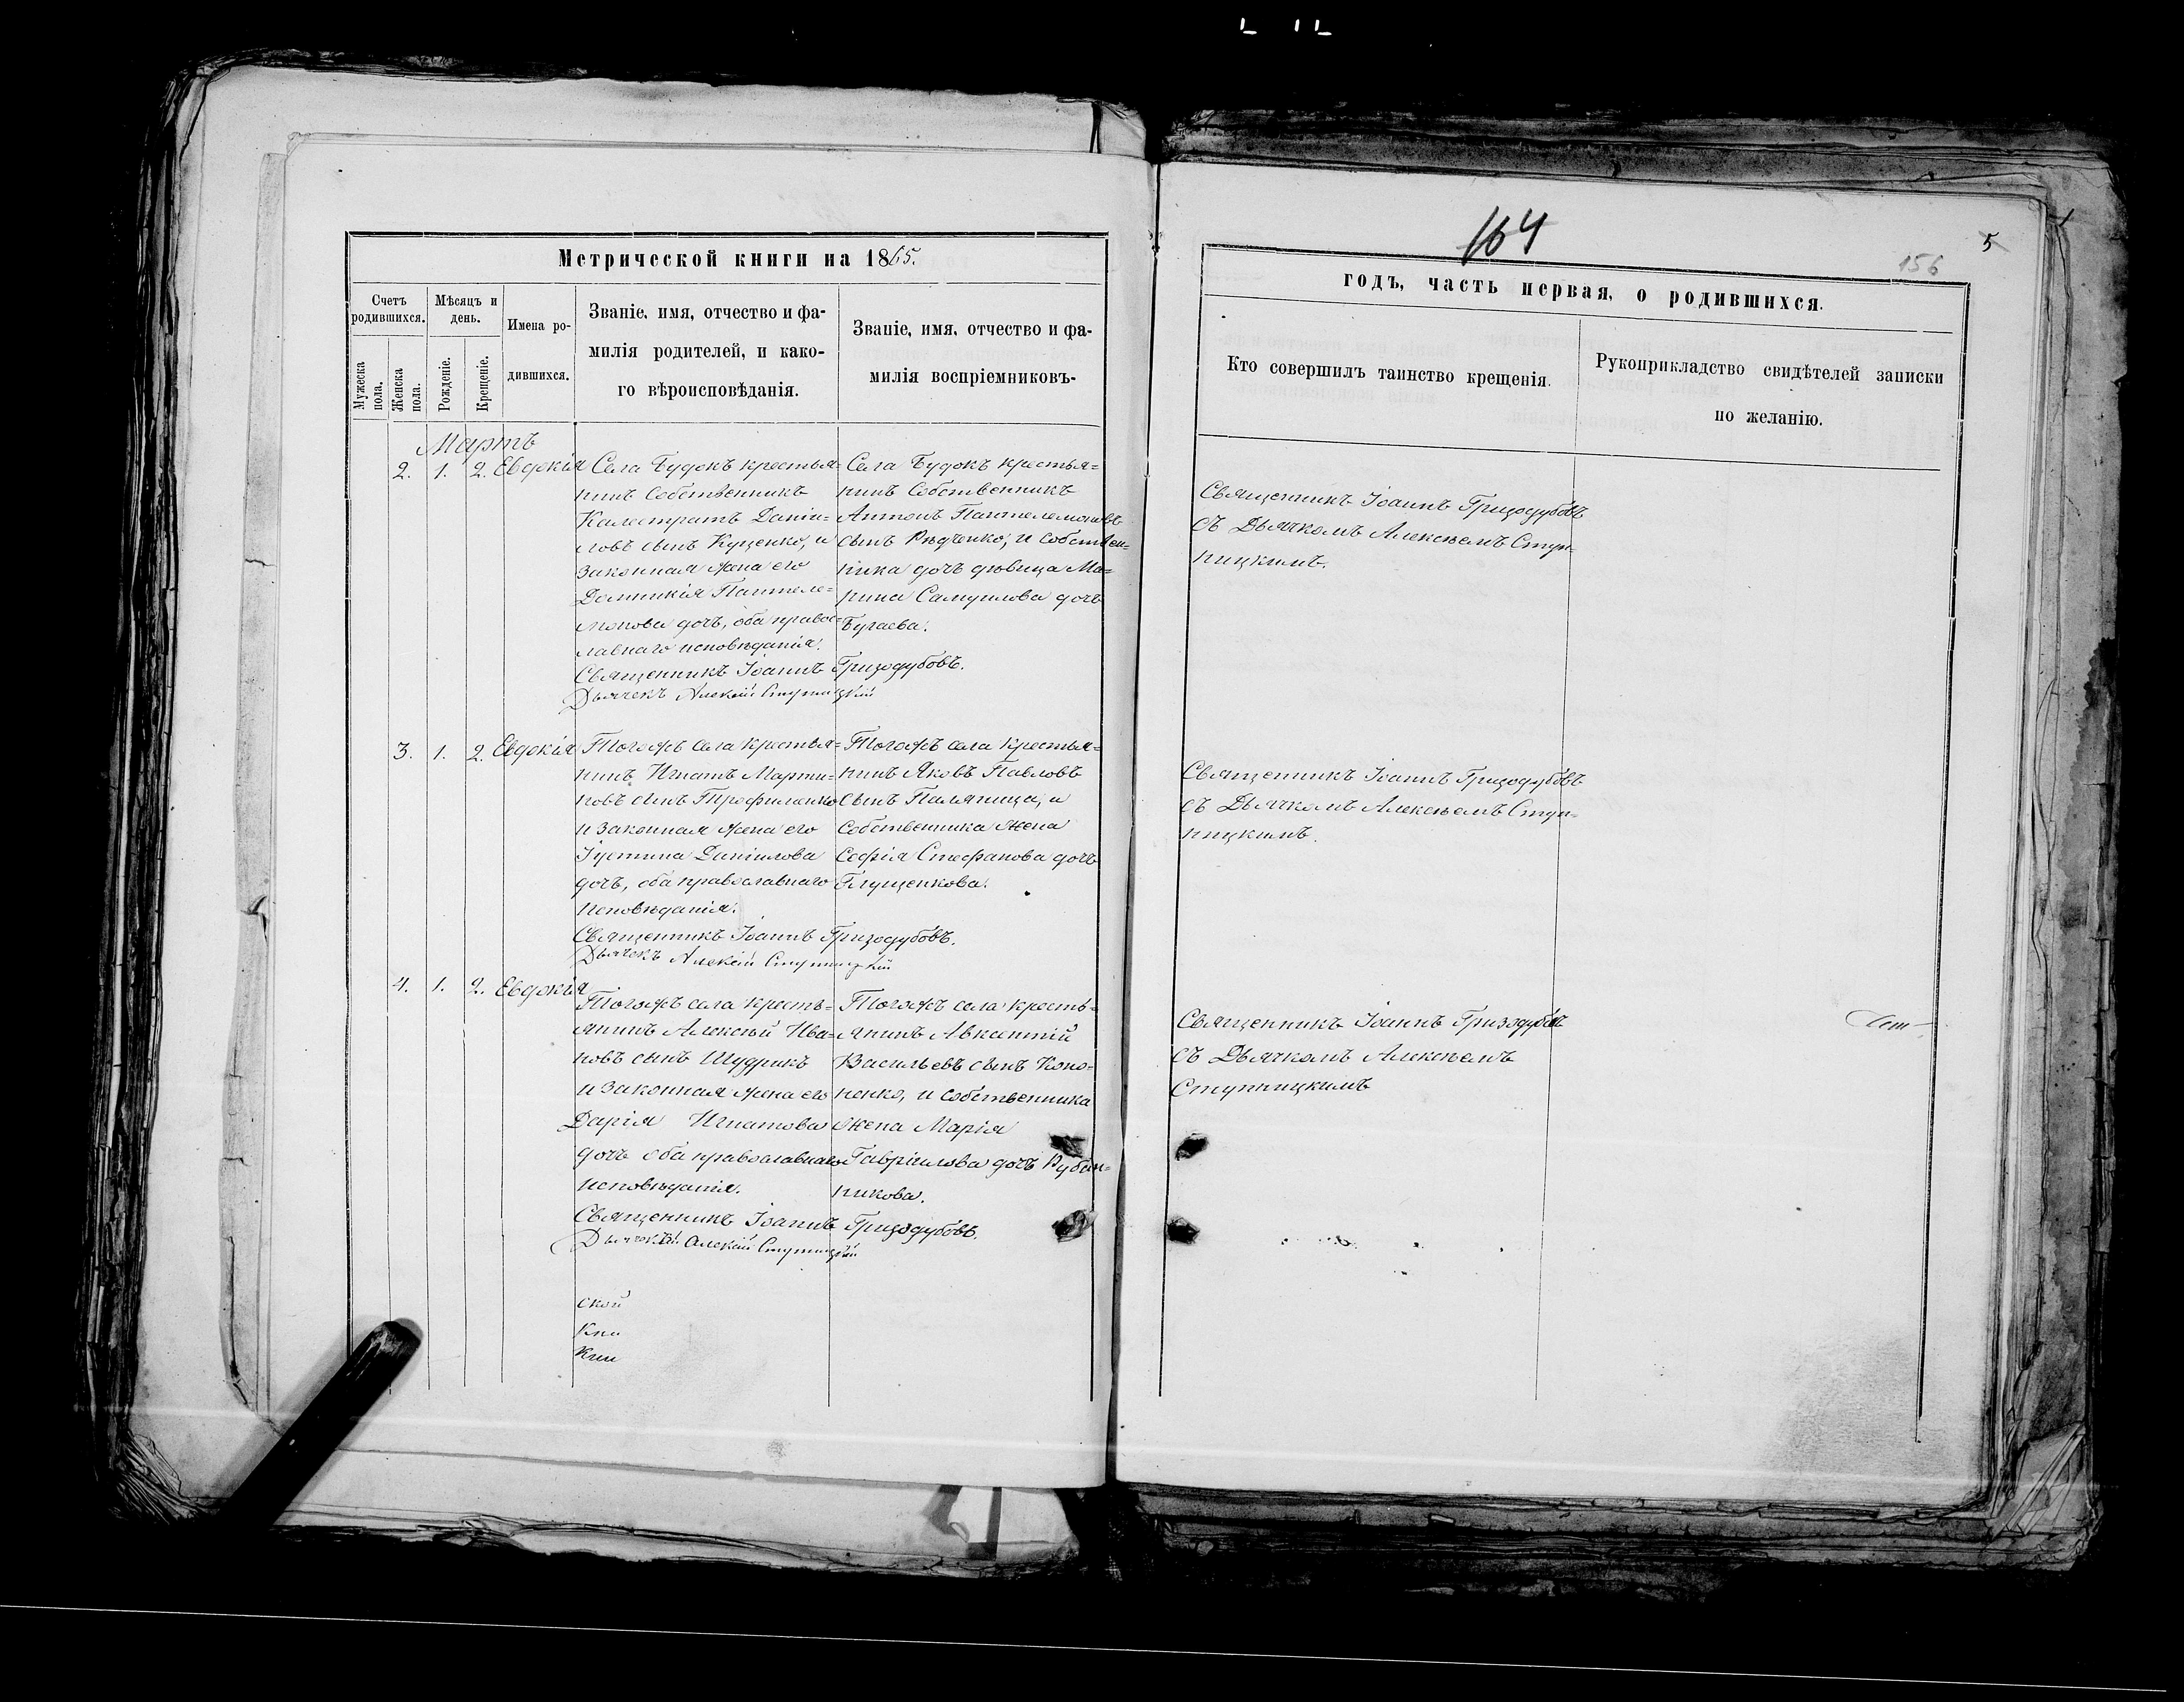 164
156
5
Метрической книги на 1865.
годъ, часть первая, о родившихся.
Счетъ родившихся.
Мѣсяцъ и день.
Имена родившихся.
Званіе, имя, отчество и фа-
милія родителей, и како-
го вѣроисповѣданія.
Званіе, имя, отчество и фа-
милія воспріемниковъ.
Мужеска пола.
Женска пола.
Рожденіе.
Крещеніе.
Кто совершилъ таинство крещенія.
Рукоприкладство свидѣтелей записки
по желанію.
Мартъ
2. 1. 2. Евдокія
Села Будокъ крестья-
нинъ Собственникъ
Калестратъ Даніи-
ловъ сынъ Куценко, и
законная жена его
Домникія Пантеле-
монова дочь, оба право-
славнаго исповѣданія.
Священникъ Іоаннъ Гризодубовъ.
Дьячекъ Алексій Ступницкій
Села Будокъ крестья-
нинъ Собственникъ
Антонъ Пантелемоновъ
сынъ Рѣдченко, и собствен-
ника дочь дѣвица Ма-
рина Самуилова дочь
Бугаева.
Священникъ Іоаннъ Гризодубовъ
съ Дьячкомъ Алексѣемъ Ступ-
ницкимъ.
3. 1. 2. Евдокія
Тогожъ села крестья-
нинъ Игнатъ Марти-
новъ сынъ Трофименко
и законная жена его
Іустина Даніилова
дочь, оба православнаго
исповѣданія.
Священникъ Іоаннъ Гризодубовъ.
Дьячекъ Алексій Ступницкій
Тогожъ села крестья-
нинъ Яковъ Павловъ
сынъ Паляница, и
Собственника жена
Софія Стефанова дочь
Глущенкова.
Священникъ Іоаннъ Гризодубовъ
съ Дьячкомъ Алексѣемъ Ступ-
ницкимъ.
4. 1. 2. Евдокія
Тогожъ села кресть-
янинъ Алексѣй Ива-
новъ сынъ Шудрикъ
и законная жена его
Дарія Игнатова
дочь оба православнаго
исповѣданія.
Священникъ Іоаннъ Гризодубовъ.
Алексій Ступницкій
Тогожъ села кресть-
янинъ Авксентій
Васильевъ сынъ Коно-
ненко, и собственника
жена Марія
Гавріилова дочь
никова.
Священникъ Іоаннъ Гризодубовъ
съ Дьячкомъ Алексѣемъ
Ступницкимъ
ской
Кни
Кни